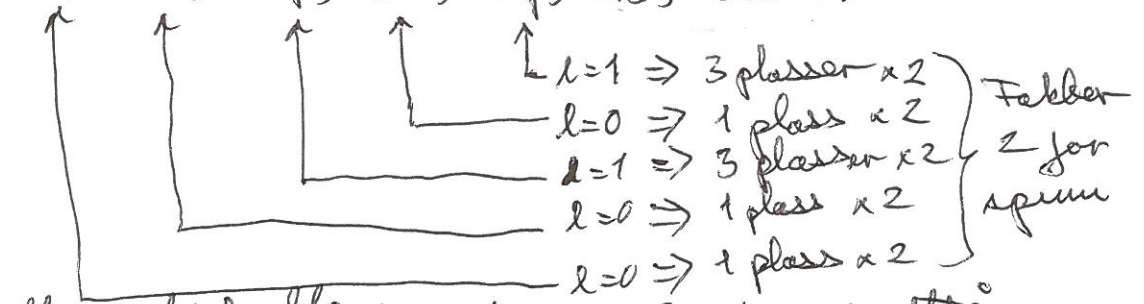 l=1 => 3 plasser x 2
l=0 => 1 plass x 2
l=1 => 3 plasser x 2
l=0 => 1 plass x 2
l=0 => 1 plass x 2
Faktor
2 for
spinn